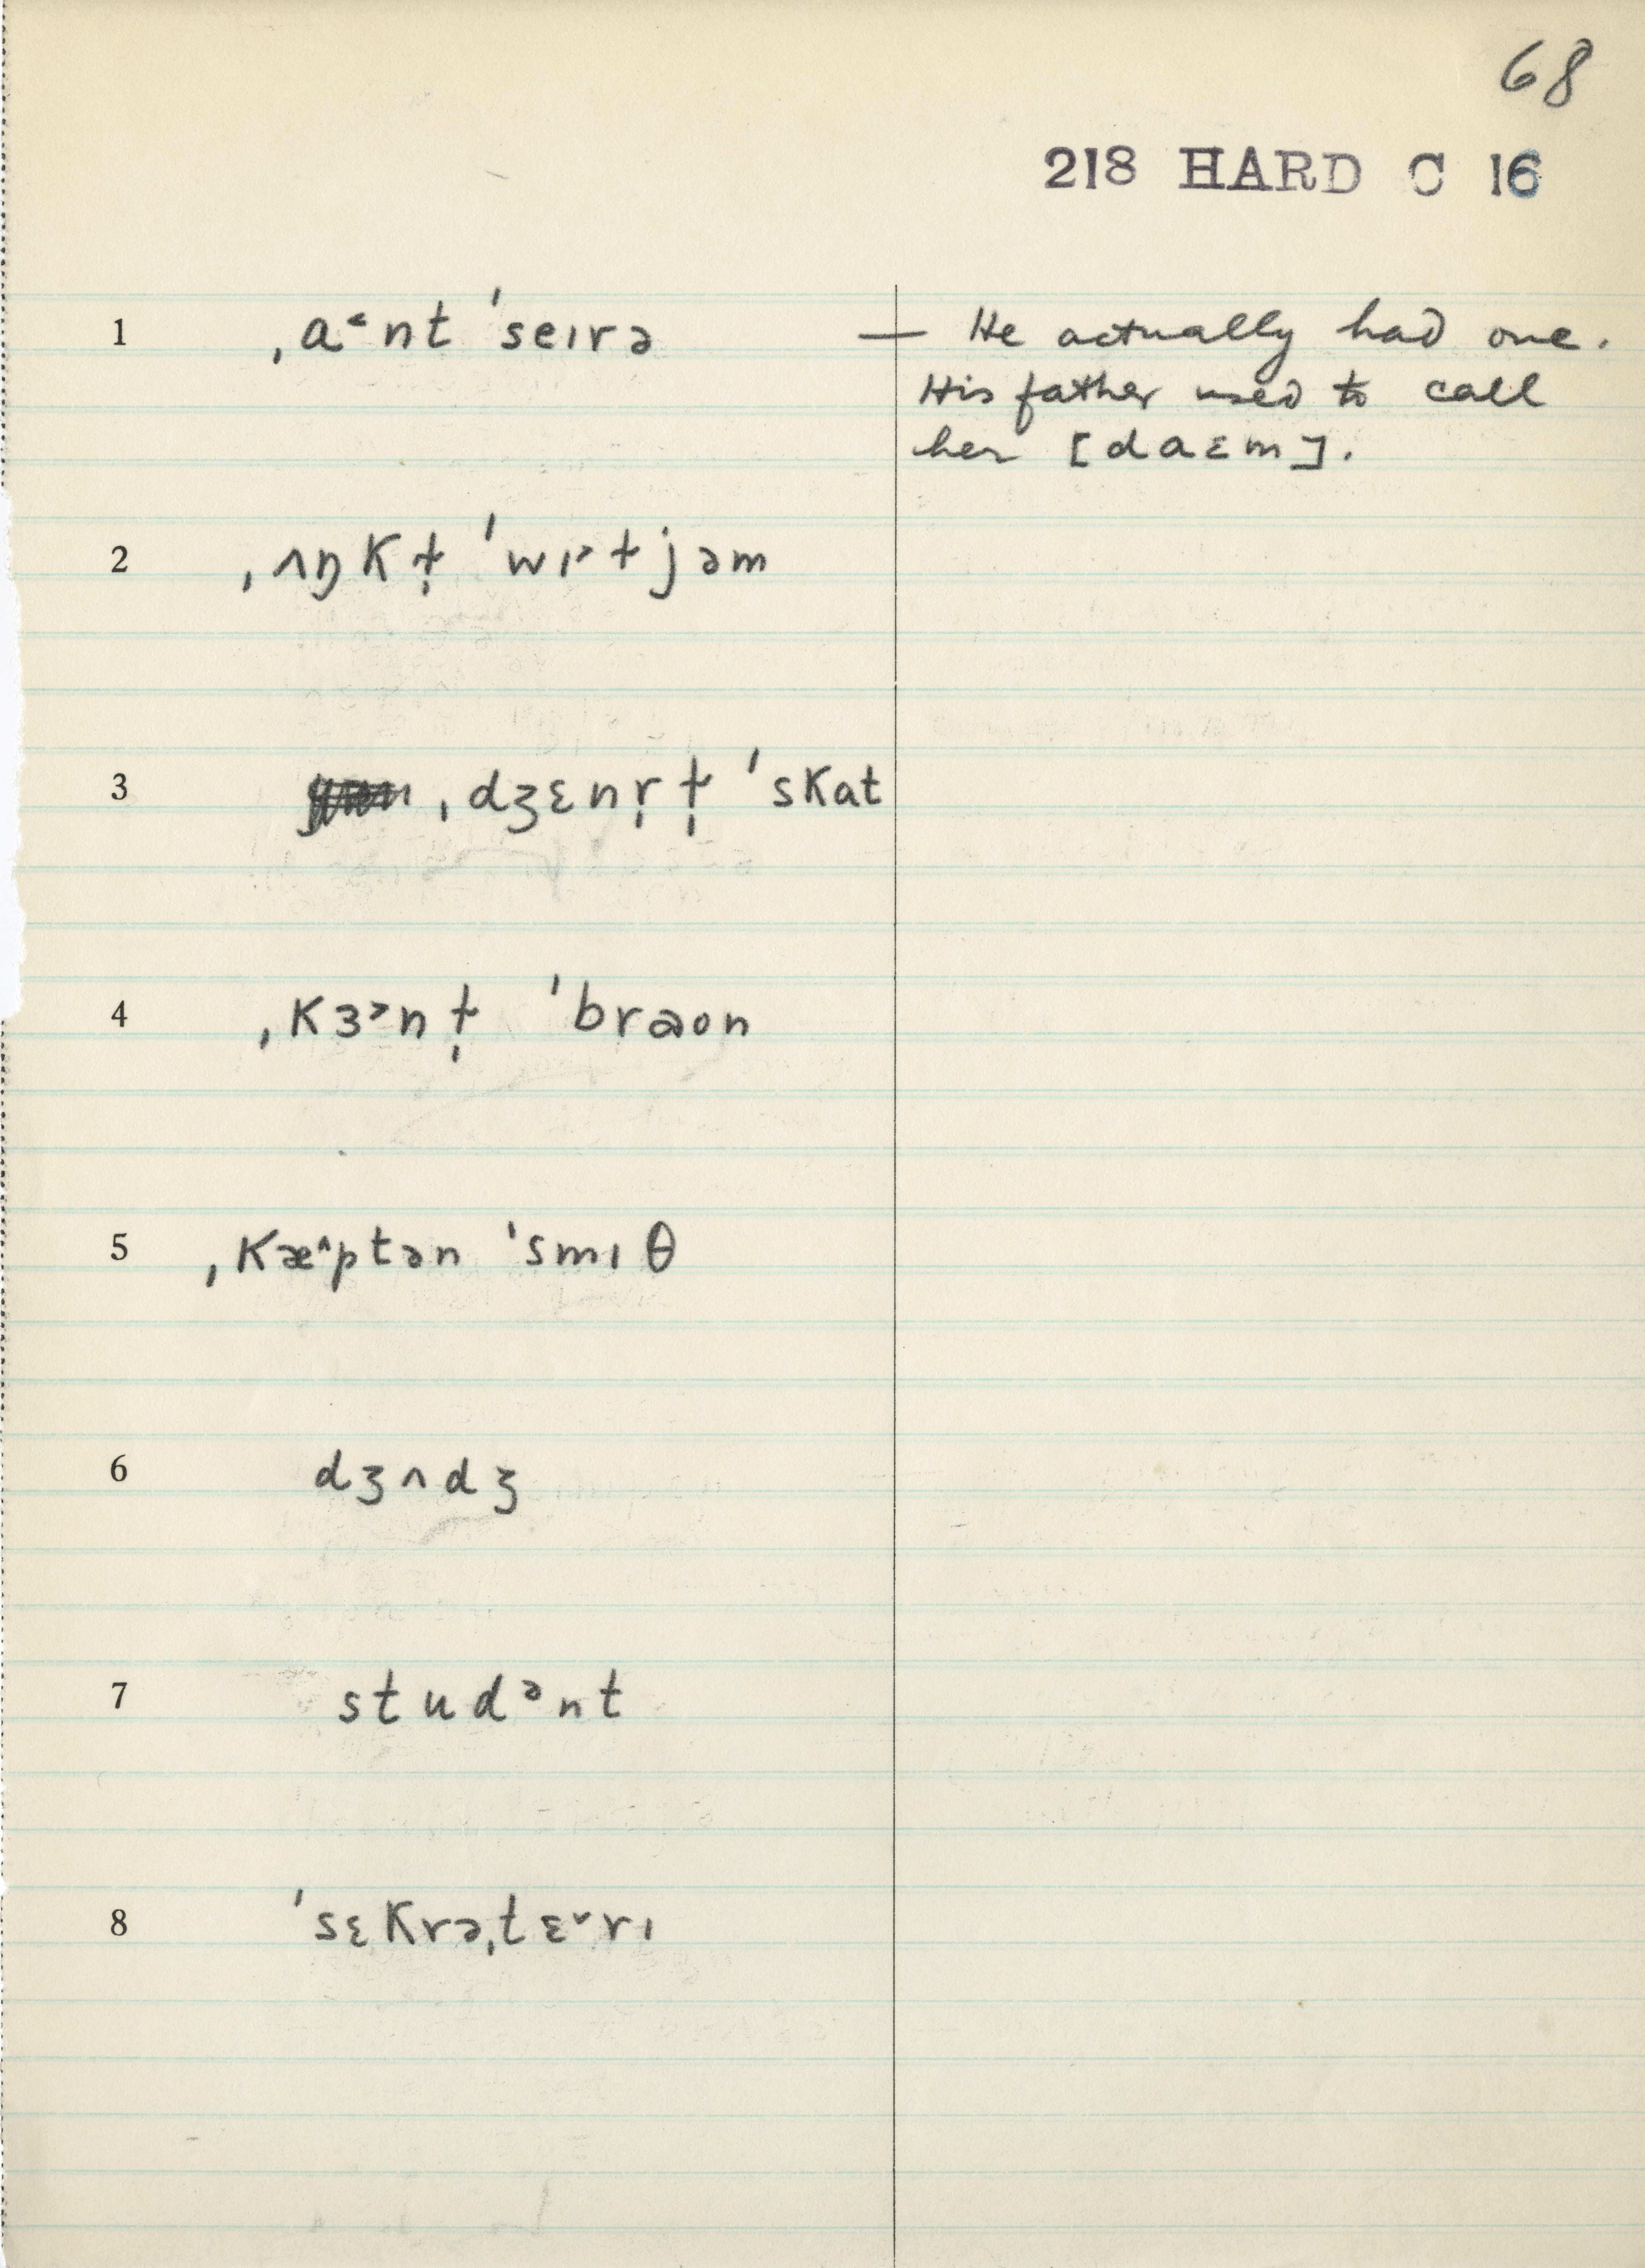 68
218 HARD C 16
1 ˌa˂nt ˈseɪrə — He actually had one.
His father used to call
her [daɛm].
2 ˌʌŋkɫ̩ ˈwɪ˃ɫjəm
3 ˌdʒɛnr̩ɫ̩ ˈskat
4 ˌkɜ˃nɫ̩ ˈbraʊn
5 ˌkæ˄ptən ˈsmɪθ
6 dʒʌdʒ
7 studᵊnt
8 ˈsɛkrəˌtɛ˅rɪ